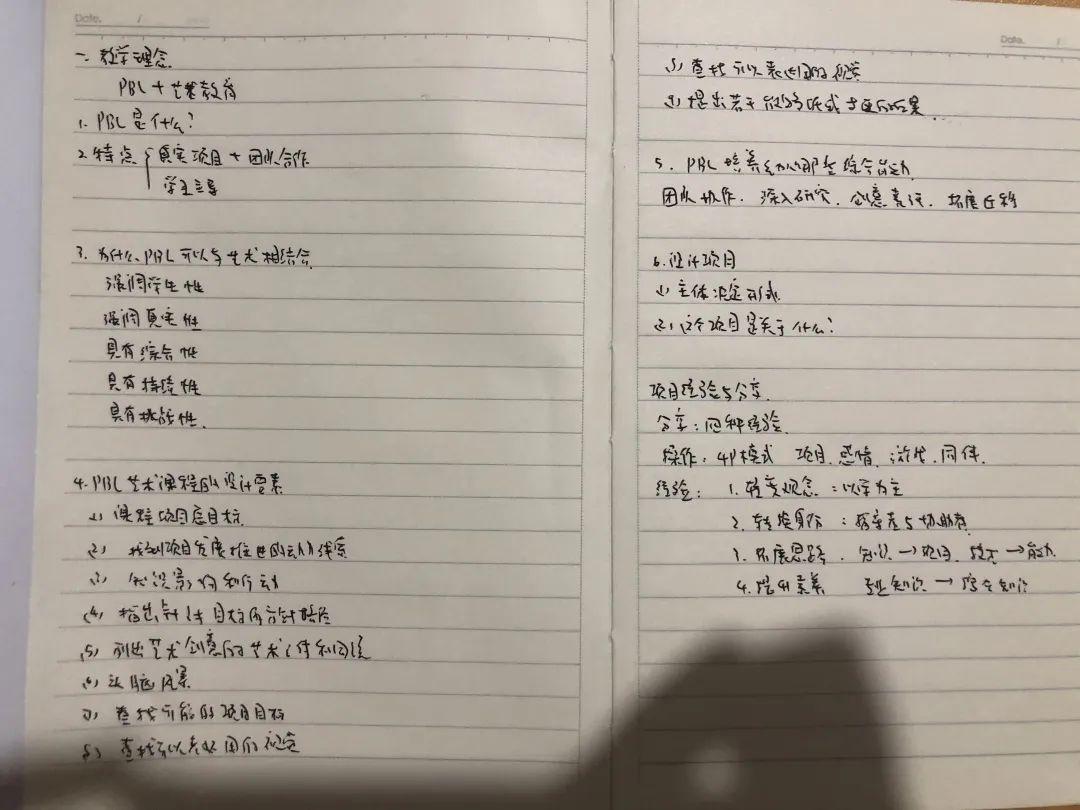 Date. /
一. 教学理念
PBL + 艺术教育
1. PBL是什么?
2. 特点 真实项目 + 团队合作
学生主导
3. 为什么PBL可以与艺术相结合
强调学生性
强调真实性
具有综合性
具有持续性
具有挑战性.
4. PBL艺术课程的设计要素
(1) 课程项目总目标
(2) 找到项目发展推进的动力线索
(3) 知识影响和行动
(4) 指出 目标的方针路径
(5) 列出艺术创意的艺术
(6) 头脑风暴
(7) 查找可能的项目目标
(8) 查找可以 的视觉
Date. /
查找可以表达 的视觉
提出若干
5. PBL培养 哪些综合能力
团队协作. 深入研究. 创意表现. 拓展迁移
6. 设计项目
(1) 主体决定形式
(2) 这个项目是关于什么?
项目经验与分享
分享: 四种经验
操作: 4P模式 项目. 感情. 游戏. 同伴.
经验: 1. 转变观念: 以学为主
2. 转换身份: 指导者与协助者
3. 拓展思路. 知识→ 技术→能力
4. 提升素养 专业知识→综合知识